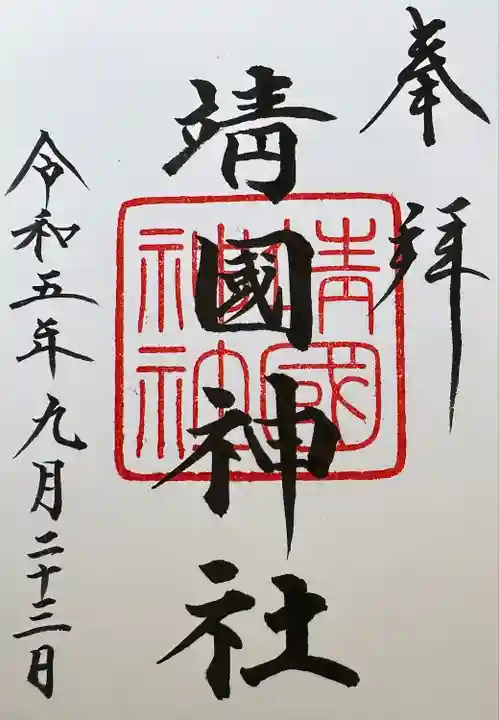 奉拜
靖國神社
靖國神社
令和五年九月二十三日